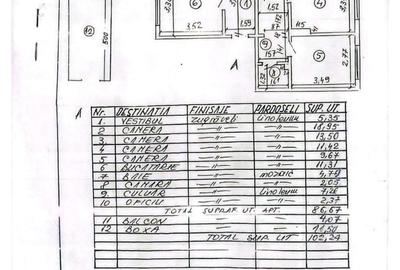 12
500
6
3,52
1
1.59
1.52
4
415
5
2,77
157
8
161
1,32
3,49
A
1
Nr. DESTINATIA FINISAJE PARDOSELI SUP. UT
1. VESTIBUL zugrăveli linoleum 5,35
2 CAMERA —"— —"— 18,95
3 CAMERA —"— —"— 13,50
4 CAMERA —"— —"— 11,42
5 CAMERA —"— —"— 9,67
6 BUCATARIE —"— —"— 11,31
7 BAIE —"— mozaic 4,79
8 CAMARA —"— —"— 2,05
9 CULOAR —"— linoleum 7,26
10 OFICIU —"— —"— 2,37
TOTAL SUPRAF. UT. APT. 86,67
11 BALCON 4,07
12 BOXA 11,50
TOTAL SUP. UT 102,24